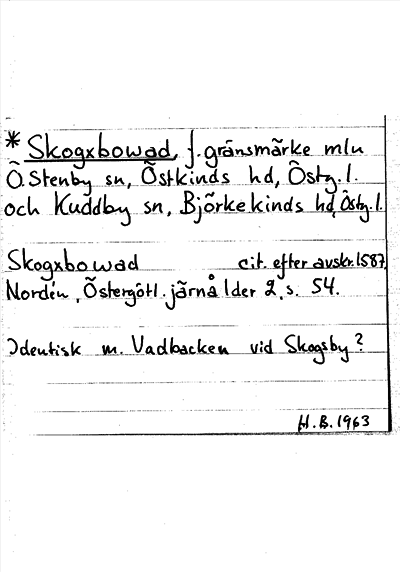 * Skogxbowad, f. gränsmärke mln
Ö. Stenby sn, Östkinds hd, Östg. l.
och Kuddby sn, Björkekinds hd, Östg. l.
Skogxbowad cit. efter avskr. 1587,
Nordén, Östergötl. järnålder 2, s. 54.
Identisk m. Vadbacken vid Skogsby?
H. B. 1963